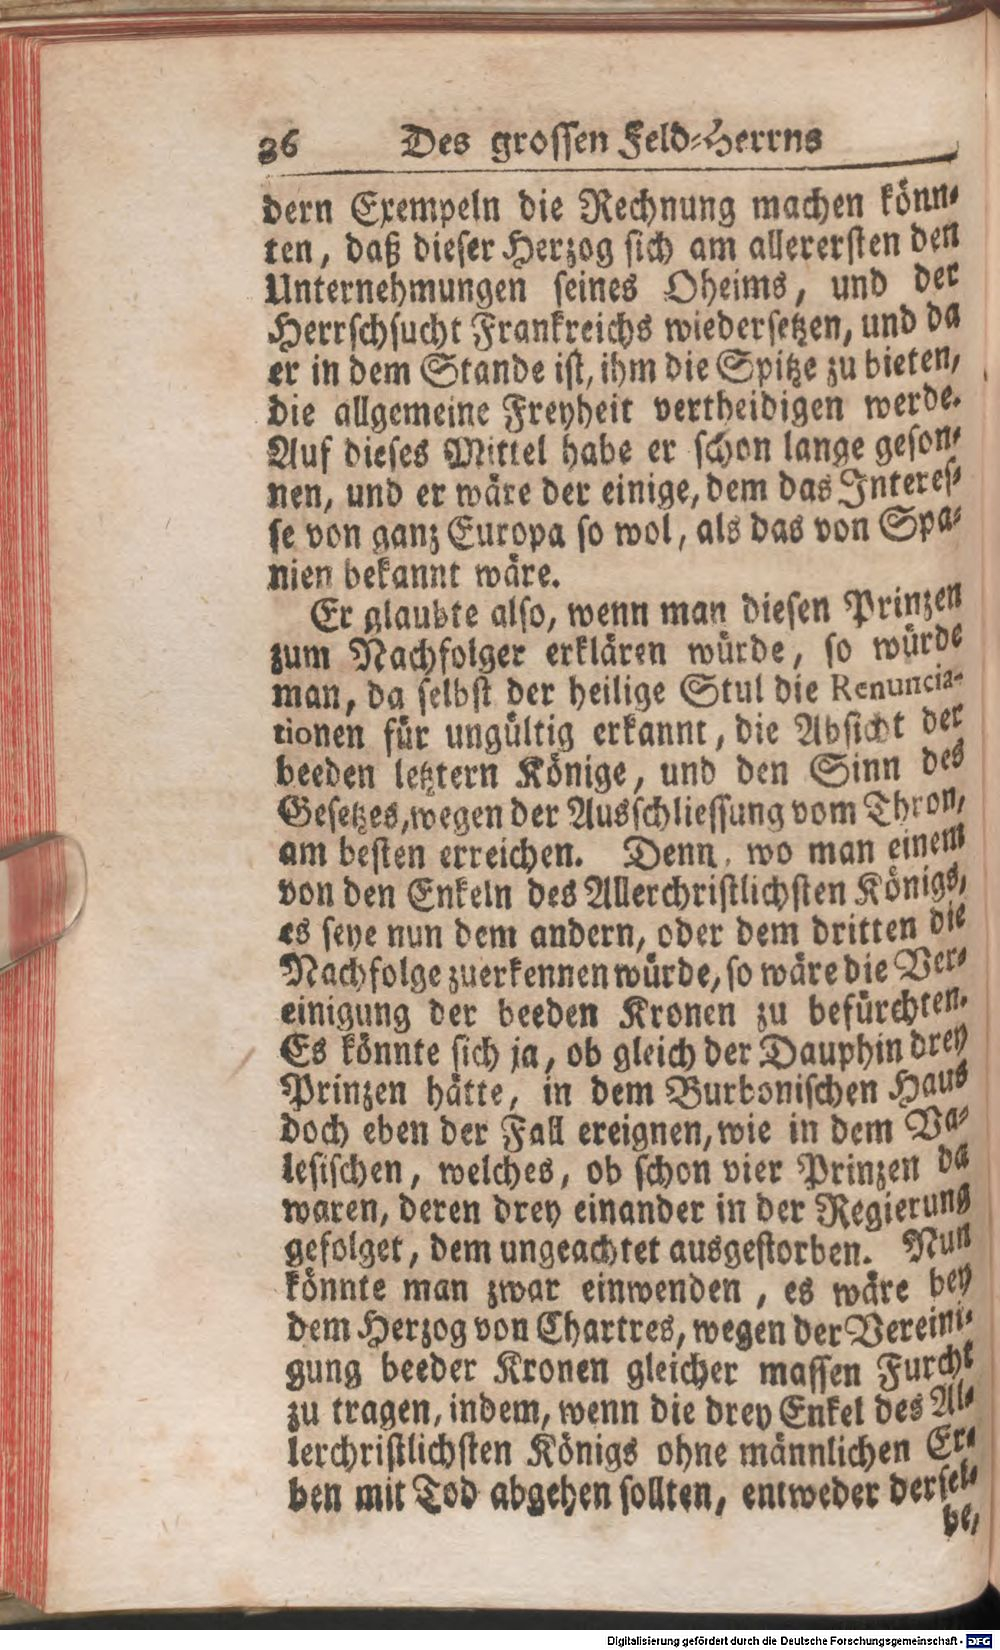 36 Des grossen Feld-Herrns
dern Exempeln die Rechnung machen könn-
ten, daß dieser Herzog sich am allerersten den
Unternehmungen seines Oheims, und der
Herrschsucht Frankreichs wiedersetzen, und da
er in dem Stande ist, ihm die Spitze zu bieten,
die allgemeine Freyheit vertheidigen werde.
Auf dieses Mittel habe er schon lange geson-
nen, und er wäre der einige, dem das Interes-
se von ganz Europa so wol, als das von Spa-
nien bekannt wäre.
Er glaubte also, wenn man diesen Prinzen
zum Nachfolger erklären würde, so würde
man, da selbst der heilige Stul die Renuncia-
tionen für ungültig erkannt, die Absicht der
beeden letztern Könige, und den Sinn des
Gesetzes, wegen der Ausschliessung vom Thron,
am besten erreichen. Denn, wo man einem
von den Enkeln des Allerchristlichsten Königs,
es seye nun dem andern, oder dem dritten die
Nachfolge zuerkennen würde, so wäre die Ver-
einigung der beeden Kronen zu befürchten.
Es könnte sich ja, ob gleich der Dauphin drey
Prinzen hätte, in dem Burbonischen Haus
doch eben der Fall ereignen, wie in dem Va-
lesischen, welches, ob schon vier Prinzen da
waren, deren drey einander in der Regierung
gefolget, dem ungeachtet ausgestorben. Nun
könnte man zwar einwenden, es wäre bey
dem Herzog von Chartres, wegen der Vereini-
gung beeder Kronen gleicher massen Furcht
zu tragen, indem, wenn die drey Enkel des Al-
lerchristlichsten Königs ohne männlichen Er-
ben mit Tod abgehen sollten, entweder dersel-
be,
Digitalisierung gefördert durch die Deutsche Forschungsgemeinschaft - DFG